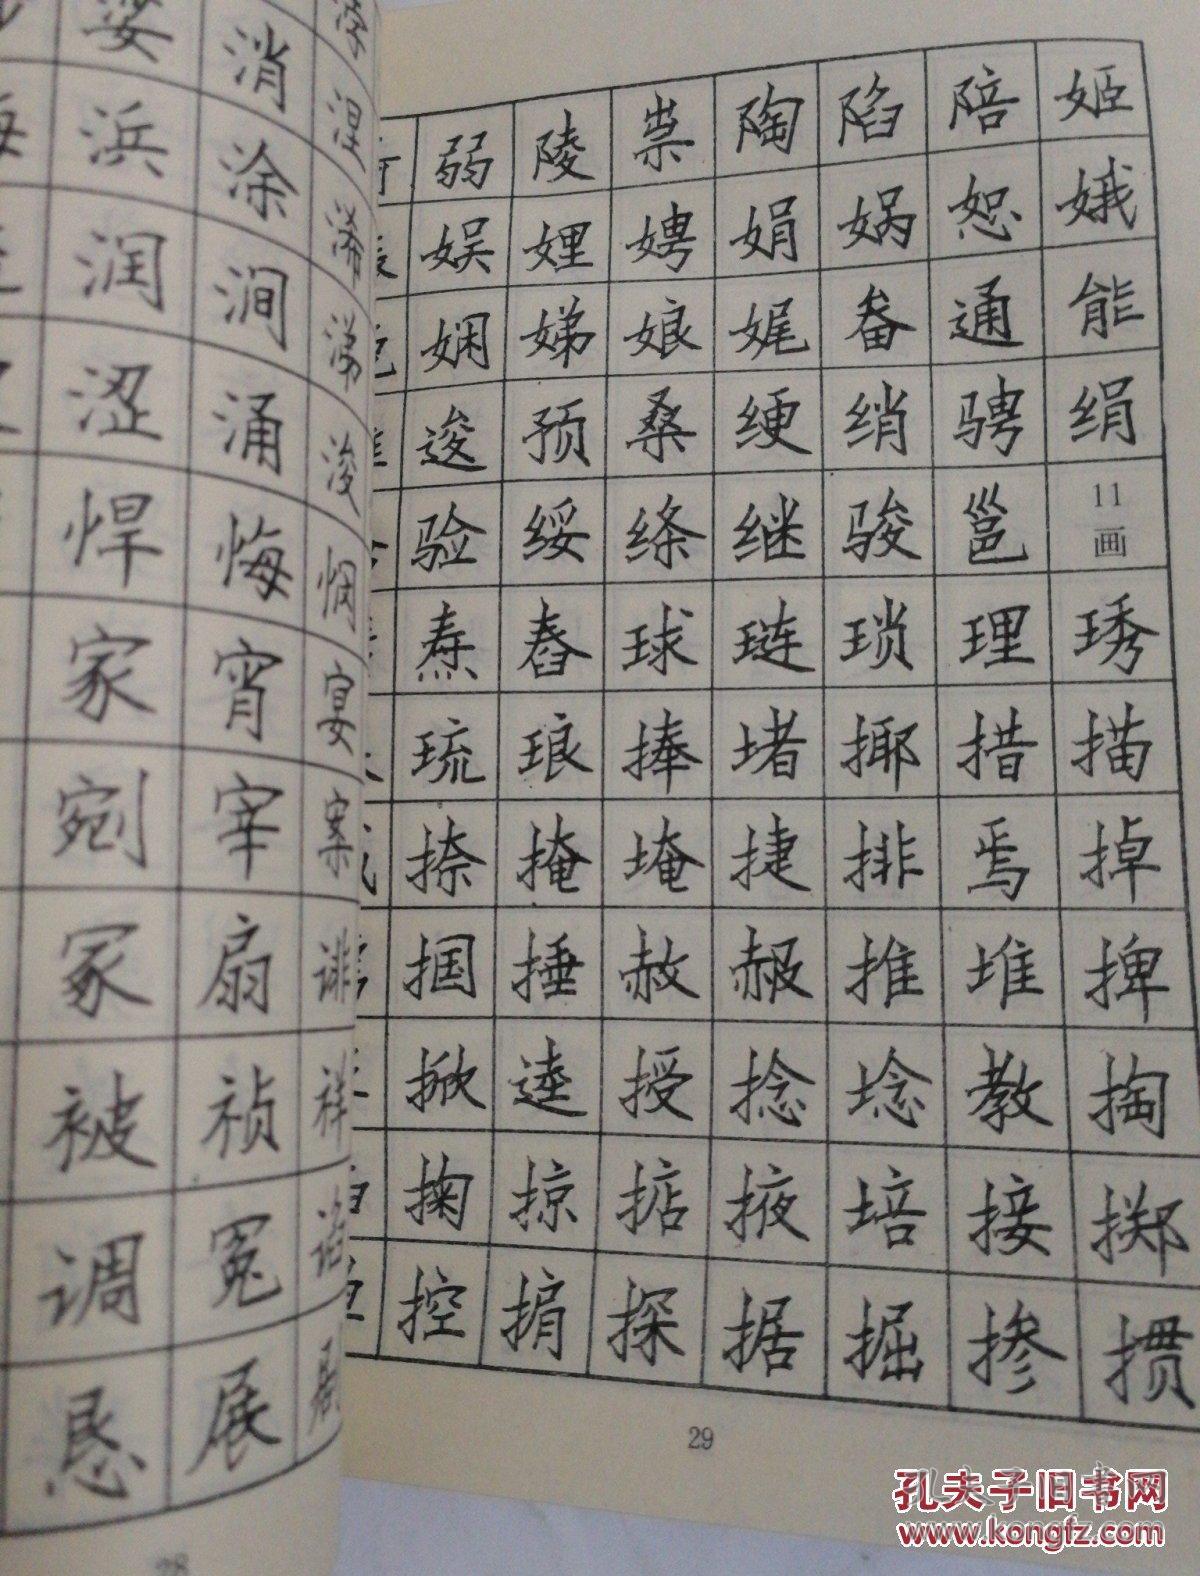 婆 消
浜 涂 涅
润 涧 涕
涩 涌 浚
悍 悔 悯
家 宵 宴
宛 宰 案
冢 扇 诽
被 祯 祥
调 冤 谄
恳 展 剧
弱 陵 祟 陶 陷 陪 姬
娱 娌 娉 娟 娲 恕 娥
娴 娣 娘 娓 畚 通 能
逡 预 桑 绠 绡 骋 绢
验 绥 绦 继 骏 邕 11画
焘 舂 球 琏 琐 理 琇
琉 琅 捧 堵 揶 措 描
捺 掩 埯 捷 排 焉 掉
掴 捶 赦 赧 推 堆 捭
掀 逵 授 捻 埝 教 掏
掬 掠 掂 掖 培 接 掷
控 掮 探 据 掘 掺 掼
29
28
孔夫子旧书网
www.kongfz.com